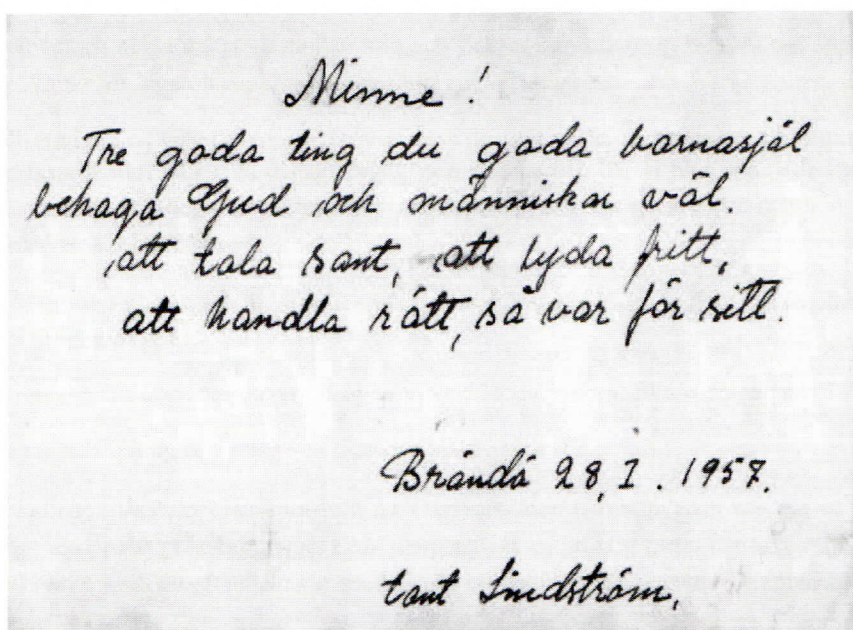 Minne!
Tre goda ting du goda barnasjäl
behaga Gud och människor väl.
att tala sant, att lyda fritt,
att handla rätt, så var för sitt.
Brändö 28, I. 1957.
tant Lindström.